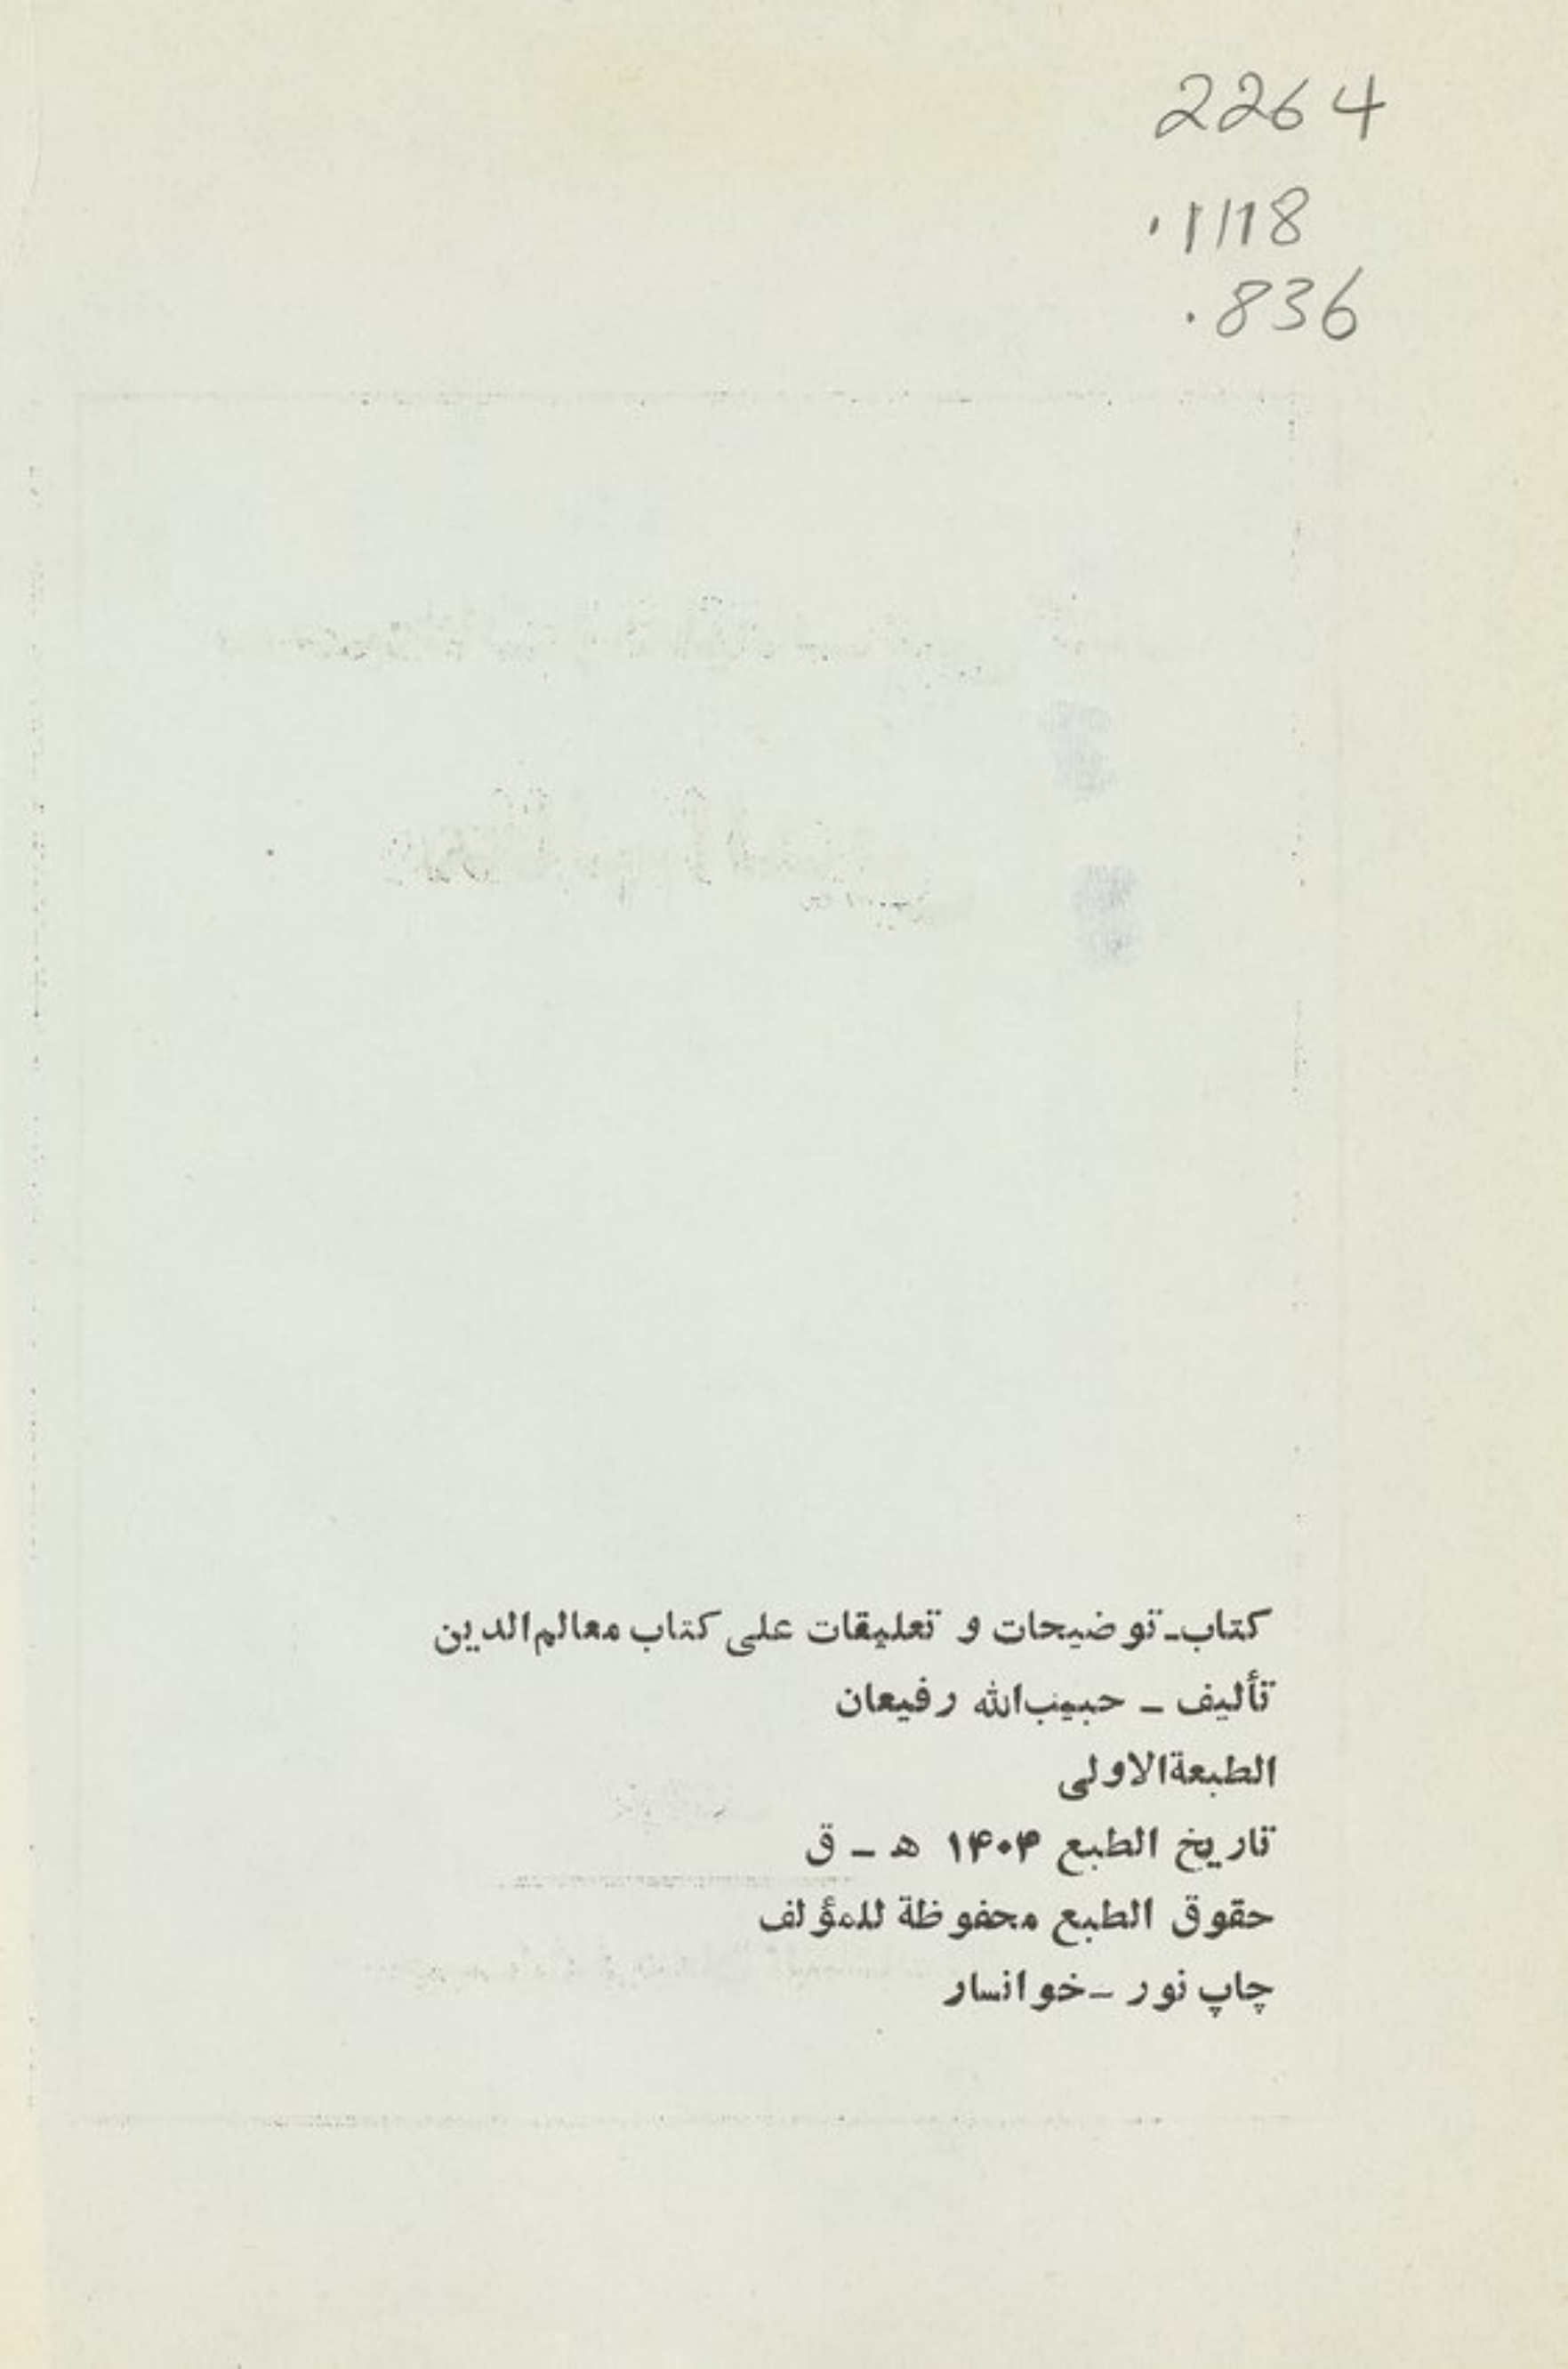 2264
.1118
.836
کتاب_توضیحات و تعلیقات علی کتاب معالم‌الدین
تألیف _ حبیب‌الله رفیعان
الطبعةالاولی
تاریخ الطبع ۱۴۰۴ ه _ ق
حقوق الطبع محفوظة للمؤلف
چاپ نور _خوانسار